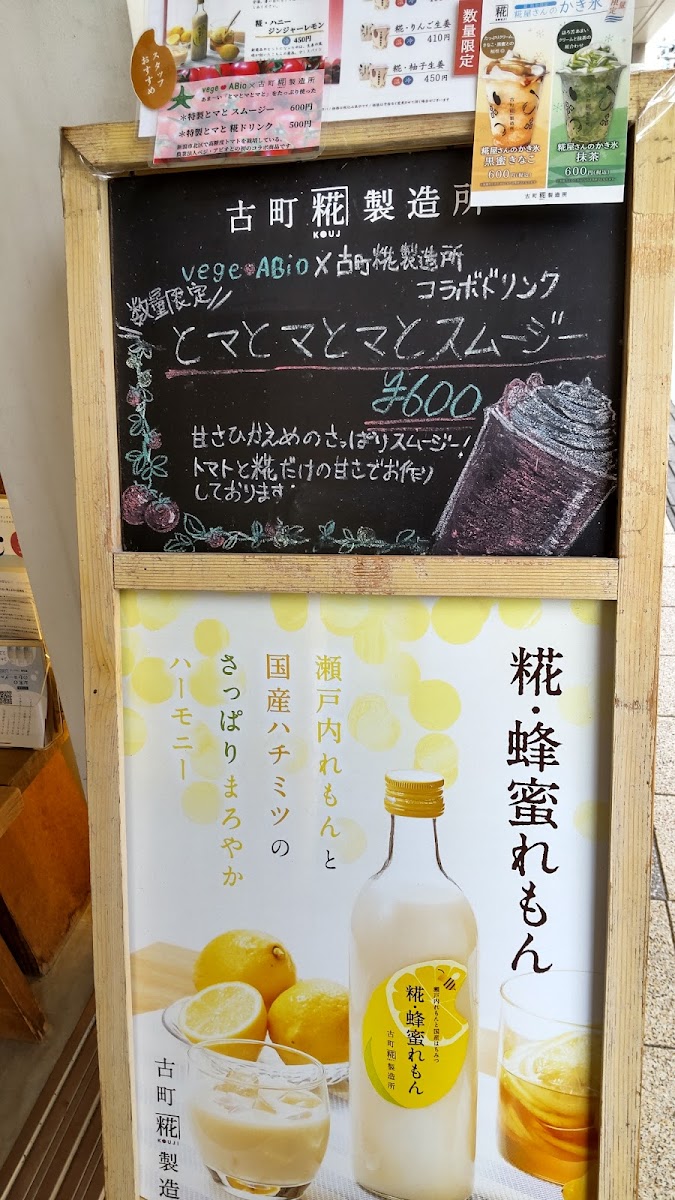 糀・ハニー
ジンジャーレモン
450円
糀・りんご生姜
410円
糀・柚子生姜
450円
数量限定
糀屋さんのかき氷
スタッフ
おすすめ
vege ABio×古町糀製造所
あま～い「とマとマとマと」をたっぷり使った
*特製とマと スムージー 600円
*特製とマと 糀ドリンク 500円
糀屋さんのかき氷
黒蜜きなこ
600円(税込)
糀屋さんのかき氷
抹茶
600円(税込)
古町糀製造所
古町糀製造所
KOUJ
vege ABio×古町糀製造所
コラボドリンク
数量限定
とマとマとマとスムージー
¥600
甘さひかえめのさっぱりスムージー!
トマトと糀だけの甘さでお作り
しております。
糀・蜂蜜れもん
瀬戸内れもんと
国産ハチミツの
さっぱりまろやか
ハーモニー
瀬戸内れもんと国産はちみつ
糀・蜂蜜れもん
古町糀製造所
古町糀製造
KOUJI